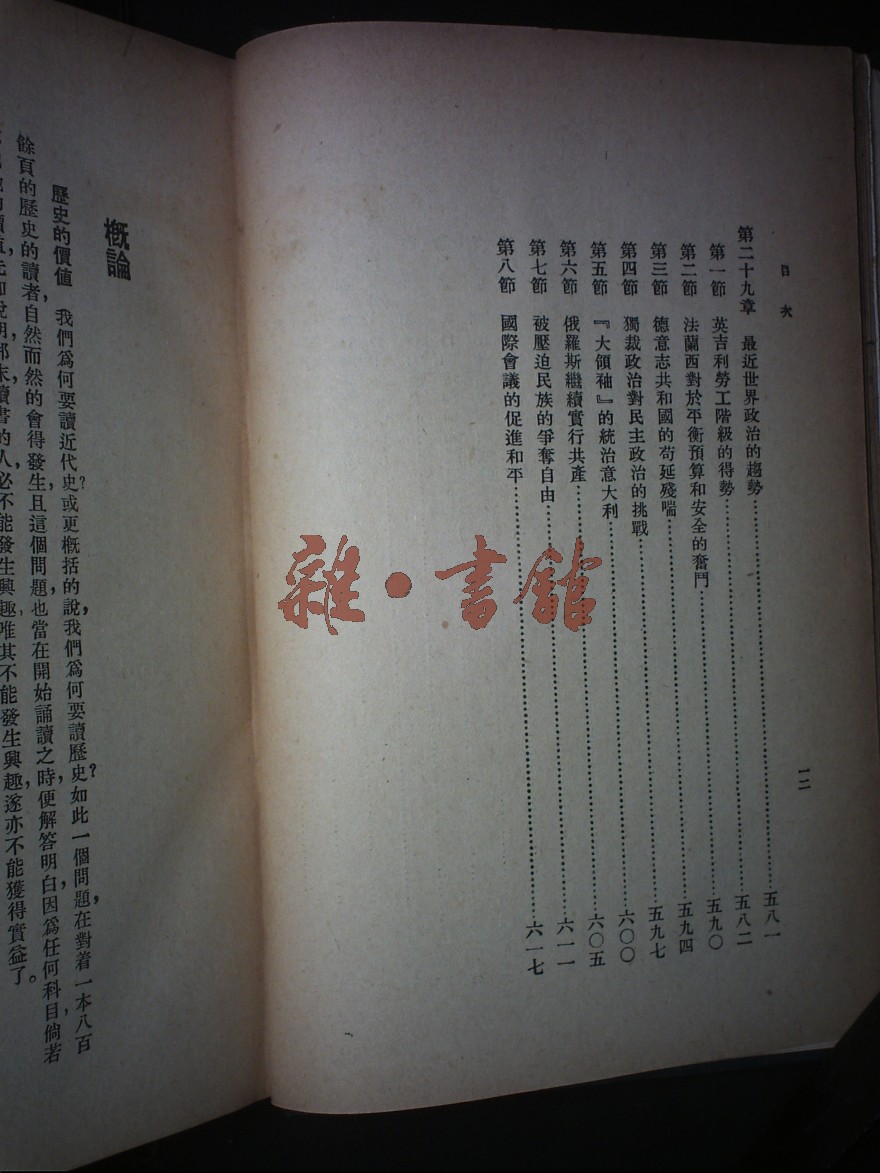 目次
一二
第二十九章 最近世界政治的趨勢……五八一
第一節 英吉利勞工階級的得勢……五八二
第二節 法蘭西對於平衡預算和安全的奮鬥……五九〇
第三節 德意志共和國的苟延殘喘……五九四
第四節 獨裁政治對民主政治的挑戰……五九七
第五節 『大領袖』的統治意大利……六〇〇
第六節 俄羅斯繼續實行共產……六〇五
第七節 被壓迫民族的爭奪自由……六一一
第八節 國際會議的促進和平……六一七
雜·書館
概論
歷史的價値 我們爲何要讀近代史?或更概括的說,我們爲何要讀歷史?如此一個問題,在對着一本八百
餘頁的歷史的讀者,自然而然的會得發生,且這個問題,也當在開始誦讀之時,便解答明白,因爲任何科目,倘若
說明,那末讀書的人必不能發生興趣,唯其不能發生興趣,遂亦不能獲得實益了。